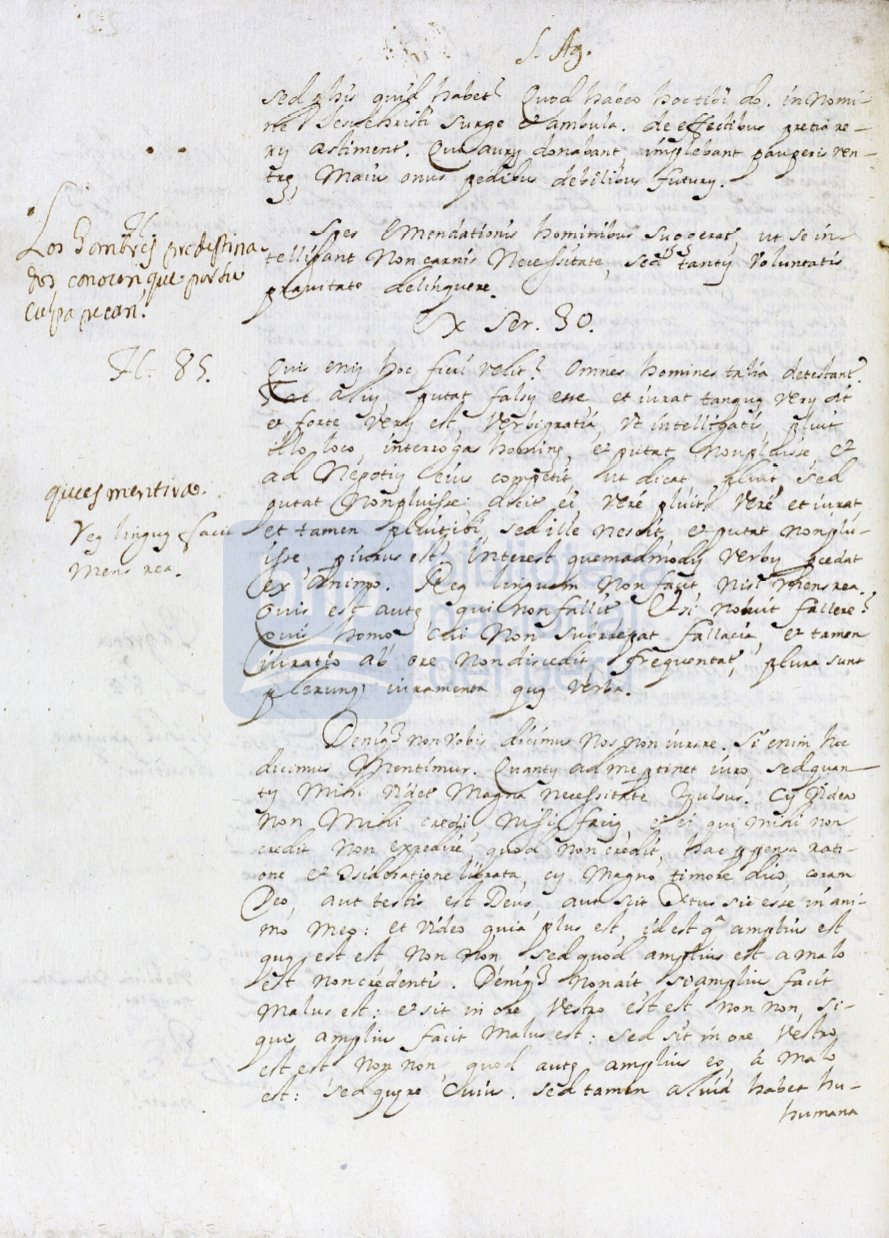 S. Ag.
sed his quid habet? Quod habeo hoc tibi do. in Nomi-
ne Iesu Christi surge et ambula. de effectibus pretia re-
rū æstiment. Qui aurū donabant, implebant pauperis ven-
trē, Maius onus pedibus debilibus futurū.
Los hombres predestina
dos conocen que por su
culpa pecan.
Spes Emendationis hominibus suggerat, ut se in-
telligant Non carnis Necessitate, sed tantū Voluntatis
prauitate delinquere.
Ex Ser. 30.
H. 85.
Quis enim hoc fieri velit? Omnes homines talia detestant.
aliū putat falsū esse et iurat tanquā verū sit
et forte verū est, Verbi gratiā, Vt intelligatis, pluit
illo loco, interrogas hominē, et putat Non pluisse, et
ad Nepotiū eius competit ut dicat pluit, sed
que es mentira.
putat Non pluisse: dicit ei, verè pluit? Verè et iurat
Reā linguā facit
mens rea.
et tamen pluit ibi sed ille nescit, et putat non plu-
isse piurus est. Interest quemadmodū verbū pcedat
ex Animo. Reā linguam Non facit nisi mens rea.
Quis est autē qui non fallit Etsi noluit fallere?
Quis homo cui Non subrrepat fallacia, et tamen
iuratio ab ore Non discedit frequentat, plura sunt
plerunq iuramenta quā verba.
Deniq non vobis dicimus Nos non iurare. Si enim hoc
dicimus Mentimur. Quantū ad me ptinet iuro, sed quan-
tū Mihi videt Magna necessitate pulsus. Cū video
Non Mihi credi, nisi faciā, et ei qui mihi non
credit Non expedire quod Non credit, hac ppensa rati-
one et consideratione librata, cū Magno timore dico coram
Deo, aut testis est Deus, aut scit Xtus sic esse in ani-
mo Meo: et video quia plus est, id est qd amplius est
quā est est Non Non sed quod amplius est a malo
est non credentis. Deniq Non ait si amplius facit
Malus est: et sit in ore vestro est est non non, si-
quis amplius facit Malus est: sed sit in ore vestro
est est Non non quod autē amplius eo, à Malo
est: sed quære Cuius. Sed tamen aliud habet hu-
humana